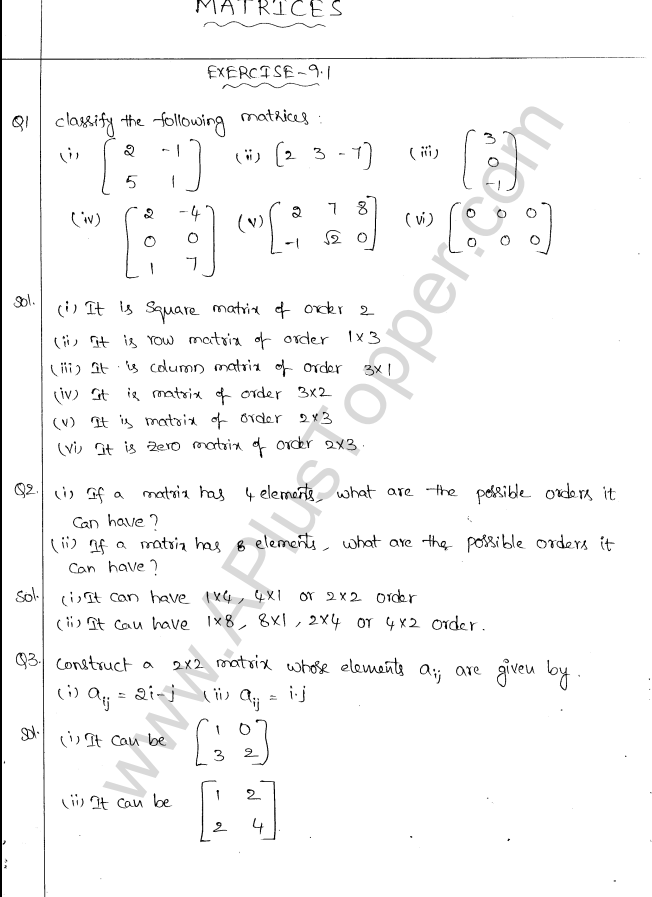 MATRICES
EXERCISE-9.1
Q1 classify the following matrices :
(i) [ 2 -1 (ii) [2 3 -7] (iii) [ 3
5 1 ] 0
-1 ]
(iv) [ 2 -4 (v) [ 2 7 8 (vi) [ 0 0 0
0 0 -1 √2 0 ] 0 0 0 ]
1 7 ]
Sol. (i) It is Square matrix of order 2
(ii) It is row matrix of order 1×3
(iii) It is column matrix of order 3×1
(iv) It is matrix of order 3×2
(v) It is matrix of order 2×3
(vi) It is zero matrix of order 2×3.
Q2. (i) If a matrix has 4 elements, what are the possible orders it
can have?
(ii) If a matrix has 8 elements, what are the possible orders it
can have?
Sol. (i) It can have 1×4, 4×1 or 2×2 order
(ii) It can have 1×8, 8×1, 2×4 or 4×2 order.
Q3. Construct a 2×2 matrix whose elements aij are given by.
(i) aij = 2i-j (ii) aij = i.j
Sol. (i) It can be [ 1 0
3 2 ]
(ii) It can be [ 1 2
2 4 ]
www.APlusTopper.com